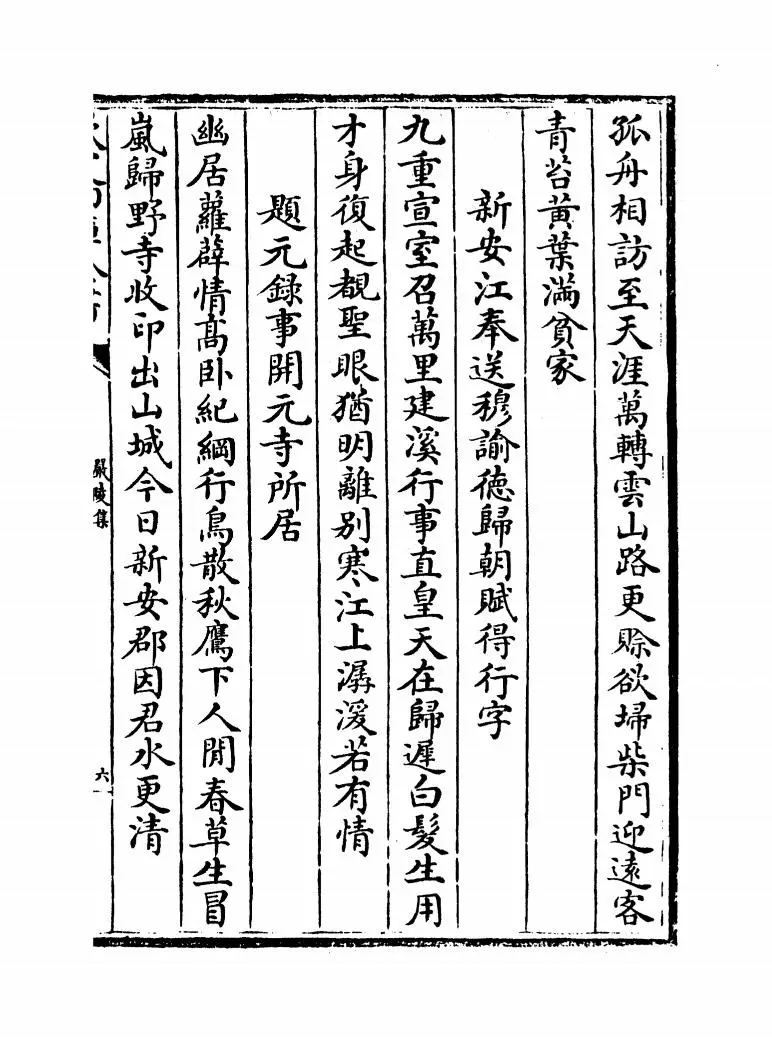 孤舟相訪至天涯萬轉雲山路更賒欲埽柴門迎遠客
青苔黃葉滿貧家
新安江奉送穆諭徳歸朝賦得行字
九重宣室召萬里建溪行事直皇天在歸遲白髮生用
才身復起覩聖眼猶明離別寒江上潺湲若有情
題元録事開元寺所居
幽居蘿薜情髙卧紀綱行鳥散秋鷹下人閒春草生冒
嵐歸野寺收印出山城今日新安郡因君水更清
嚴陵集
六